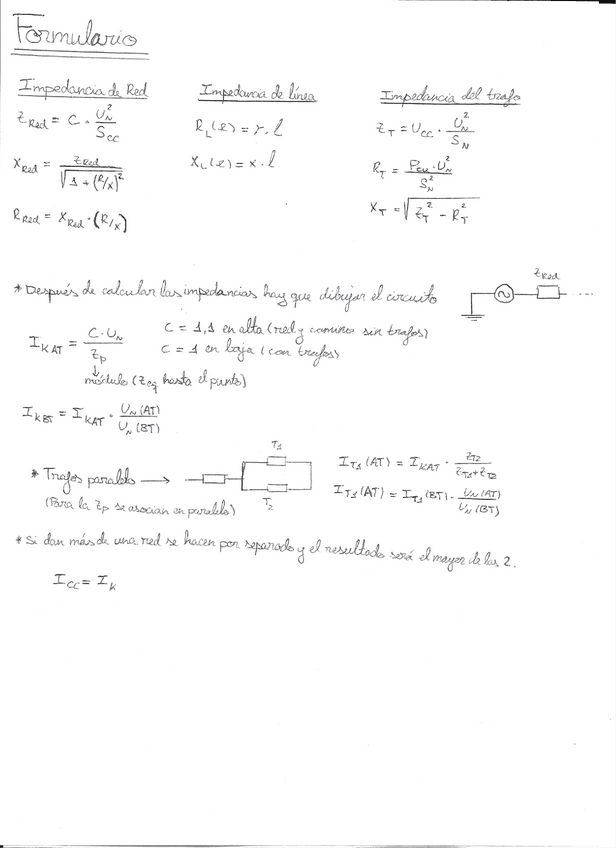 Formulario
Impedancia de Red
Z_Red = C · U_N² / S_CC
X_Red = Z_Red / √(1 + (R/X)²)
R_Red = X_Red · (R/X)
Impedancia de línea
R_L(l) = r · l
X_L(l) = x · l
Impedancia del trafo
Z_T = U_CC · U_N² / S_N
R_T = P_Cu · U_N² / S_N²
X_T = √(Z_T² - R_T²)
* Después de calcular las impedancias hay que dibujar el circuito
Z_Red
I_KAT = C · U_N / Z_P
C = 1,1 en alta (red y camino sin trafos)
C = 1 en baja (con trafos)
↓
módulo (Z_eq hasta el punto)
I_KBT = I_KAT · U_N(AT) / U_N(BT)
* Trafos paralelo →
(Para la Z_P se asocian en paralelo)
T_1
T_2
I_T1(AT) = I_KAT · Z_T2 / Z_T1+Z_T2
I_T1(AT) = I_T1(BT) · U_N(AT) / U_N(BT)
* Si dan más de una red se hacen por separado y el resultado será el mayor de las 2.
I_CC = I_K